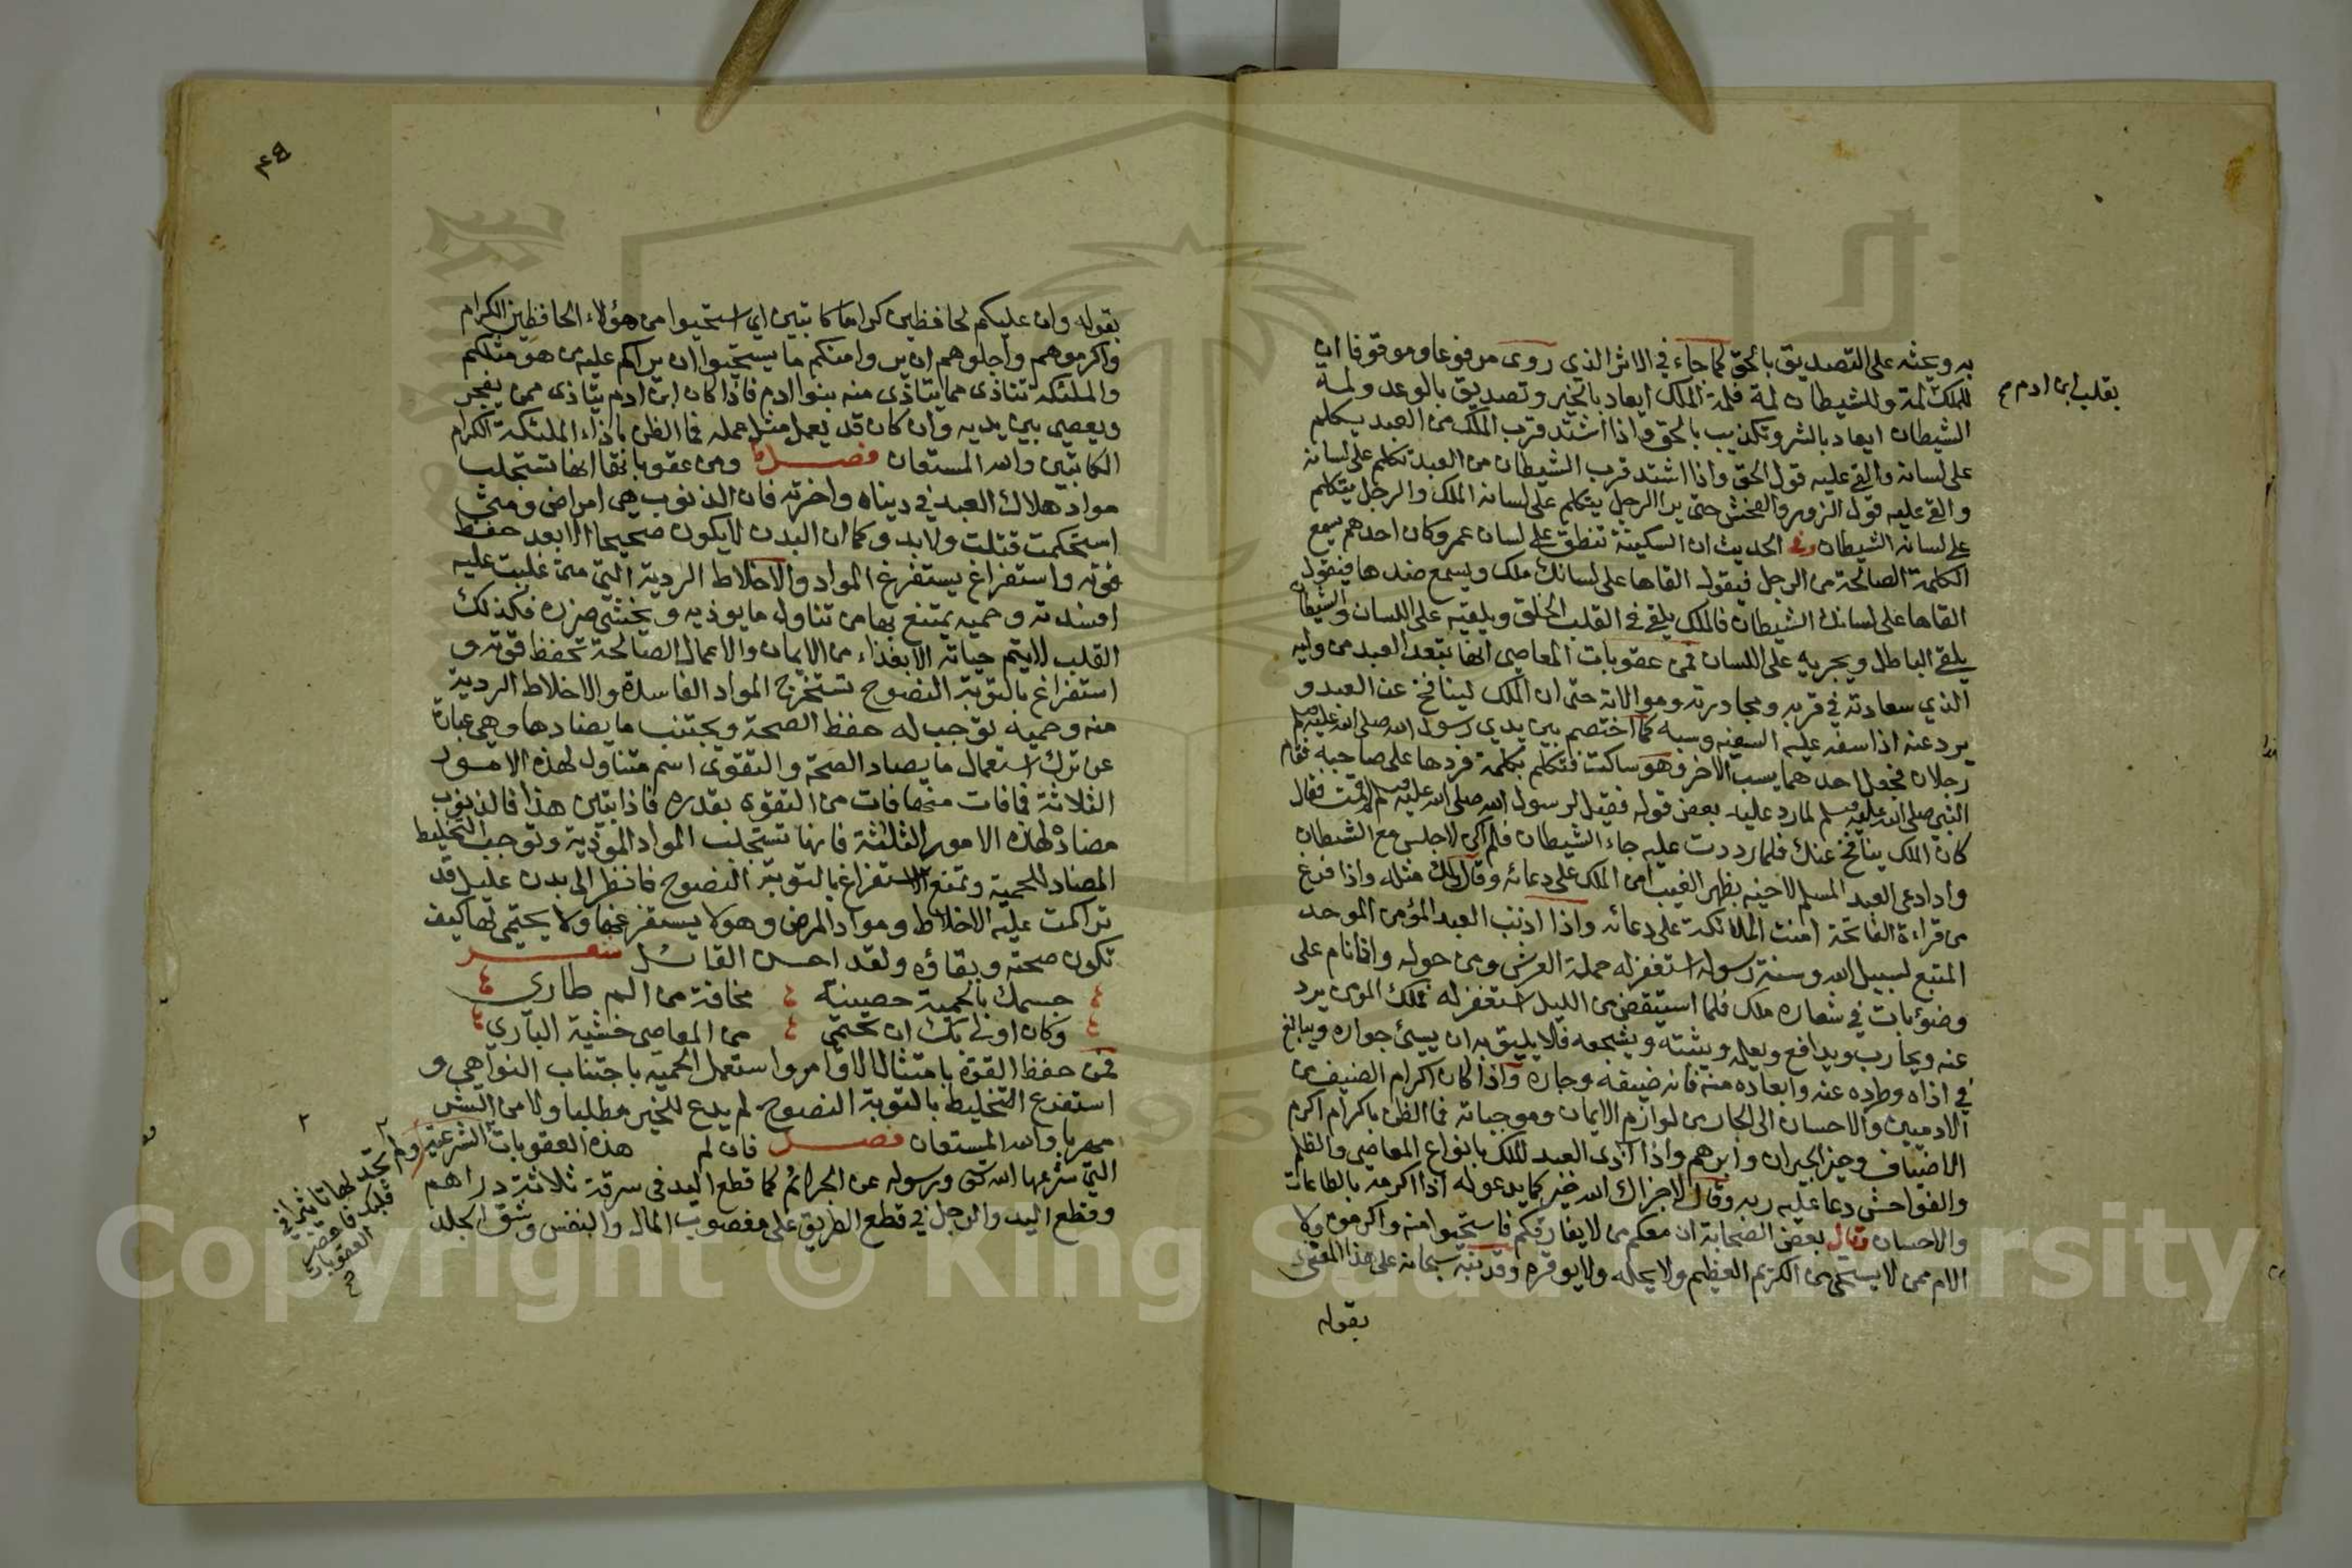 به ويحثه على التصديق بالحق كما جاء في الاثر الذي روى مرفوعا وموقوفا ان
للملك لمة وللشيطان لمة فلمة الملك ايعاد بالخير وتصديق بالوعد ولمة
بقلب ابن ادم
الشيطان ايعاد بالشر وتكذيب بالحق واذا اشتد قرب الملك من العبد يتكلم
على لسانه والقى عليه قول الحق واذا اشتد قرب الشيطان من العبد تكلم على لسانه
والقى عليه قول الزور والفحش حتى يرا الرجل يتكلم على لسانه الملك والرجل يتكلم
على لسانه الشيطان وفي الحديث ان السكينة تنطق على لسان عمر وكان احدهم يسمع
الكلمة الصالحة من الرجل فيقول القاها على لسانك ملك ويسمع ضدها فيقول
القاها على لسانك الشيطان فالملك يلقي في القلب الحق ويلقيه على اللسان والشيطان
يلقي الباطل ويجريه على اللسان فمن عقوبات المعاصي انها تبعد العبد من وليه
الذي سعادته في قربه ومجاورته وموالاته حتى ان الملك لينافح عن العبد و
يرد عنه اذا سفه عليه السفيه وسبه كما اختصم بين يدي رسول الله صلى الله عليه وسلم
رجلان فجعل احدهما يسب الاخر وهو ساكت فتكلم بكلمة فردها على صاحبه فقام
النبي صلى الله عليه وسلم لما رد عليه بعض قوله فقيل لرسول الله صلى الله عليه وسلم لم قمت فقال
كان الملك ينافح عنك فلما رددت عليه جاء الشيطان فلم اكن لاجلس مع الشيطان
واذا دعى العبد المسلم لاخيه بظهر الغيب امن الملك على دعائه وقال لك مثله واذا فرغ
من قراءة الفاتحة امنت الملائكة على دعائه واذا اذنب العبد المؤمن الموحد
المتبع لسبيل الله وسنة رسوله استغفر له حملة العرش ومن حوله واذا نام على
وضوء بات في شعاره ملك فلما استيقض من الليل استغفر له فملك المؤمن يرد
عنه ويحارب ويدافع ويعلمه ويثبته ويشجعه فلا يليق به ان يسيئ جواره ويبالغ
في اذاه وطرده عنه وابعاده منه فانه ضيفه وجاره واذا كان اكرام الضيف من
الادميين والاحسان الى الجار من لوازم الايمان وموجباته فما الظن باكرام اكرم
الاضياف وخير الجيران وابرهم واذا اذى العبد للملك بانواع المعاصي والظلم
والفواحش دعا عليه ربه وقال لا جزاك الله خيرا كما يدعو له اذا اكرمه بالطاعات
والاحسان وقال بعض الصحابة ان معكم من لا يفارقكم فاستحيوا منه واكرموه ولا
الام ممن لا يستحي من الكريم العظيم ولا يجله ولا يوقره وقد نبه سبحانه على هذا المعنى
بقوله
بقوله وان عليكم لحافظين كراما كاتبين اي استحيوا من هؤلاء الحافظين الكرام
واكرموهم واجلوهم ان يروا منكم ما يستحيوا ان يراكم عليه من هو مثلكم
والملئكة تتاذى مما يتاذى منه بنوا ادم فاذا كان ابن ادم يتاذى ممن يفجر
ويعصي بين يديه وان كان قد يعمل مثل عمله فما الظن باذاء الملئكة الكرام
الكاتبين والله المستعان فصل ومن عقوباتها انها تستجلب
مواد هلاك العبد في ديناه واخرته فان الذنوب هي امراض ومتى
استحكمت قتلت ولا بد وكما ان البدن لا يكون صحيحا الا بعد حفظ
قوته واستفراغ يستفرغ المواد والاخلاط الردية التي متى غلبت عليه
افسدته وحمية يمتنع بها من تناول ما يوذيه ويخشى ضرره فكذلك
القلب لا يتم حياته الا بغذاء من الايمان والاعمال الصالحة تحفظ قوته و
استفراغ بالتوبة النصوح تستخرج المواد الفاسدة والاخلاط الردية
منه وحمية توجب له حفظ الصحة ويجتنب ما يضادها وهي عبارة
عن ترك استعمال ما يضاد الصحة والتقوى اسم متناول لهذه الامور
الثلاثة فما فات منها فات من التقوى بقدره فاذا تبين هذا فالذنوب
مضادة لهذه الامور الثلثة فانها تستجلب المواد الموذية وتوجب التخليط
المضاد للحمية وتمنع الاستفراغ بالتوبة النصوح فانظر الى بدن عليل قد
تراكمت عليه الاخلاط ومواد المرض وهو لا يستفرغها ولا يحتمي لها كيف
تكون صحته وبقاؤه ولقد احسن القائل شعر
جسمك بالحمية حصينة مخافة من الم طاري
وكان اولى بك ان تحتمي من المعاصي خشية الباري
فمن حفظ القوة بامتثال الاوامر واستعمل الحمية باجتناب النواهي و
استفرغ التخليط بالتوبة النصوح لم يدع للخير مطلبا ولا من الشر
مهربا والله المستعان فصل فان لم هذه العقوبات الشرعية
ولم تجد لها تاثيرا في
قلبك فاحضره
العقوبات
التي شرعها الله ورسوله عن الجرائم كما قطع اليد في سرقة ثلاثة دراهم
وقطع اليد والرجل في قطع الطريق على مغصوب المال والنفس وشق الجلد
Copyright © King Saud University